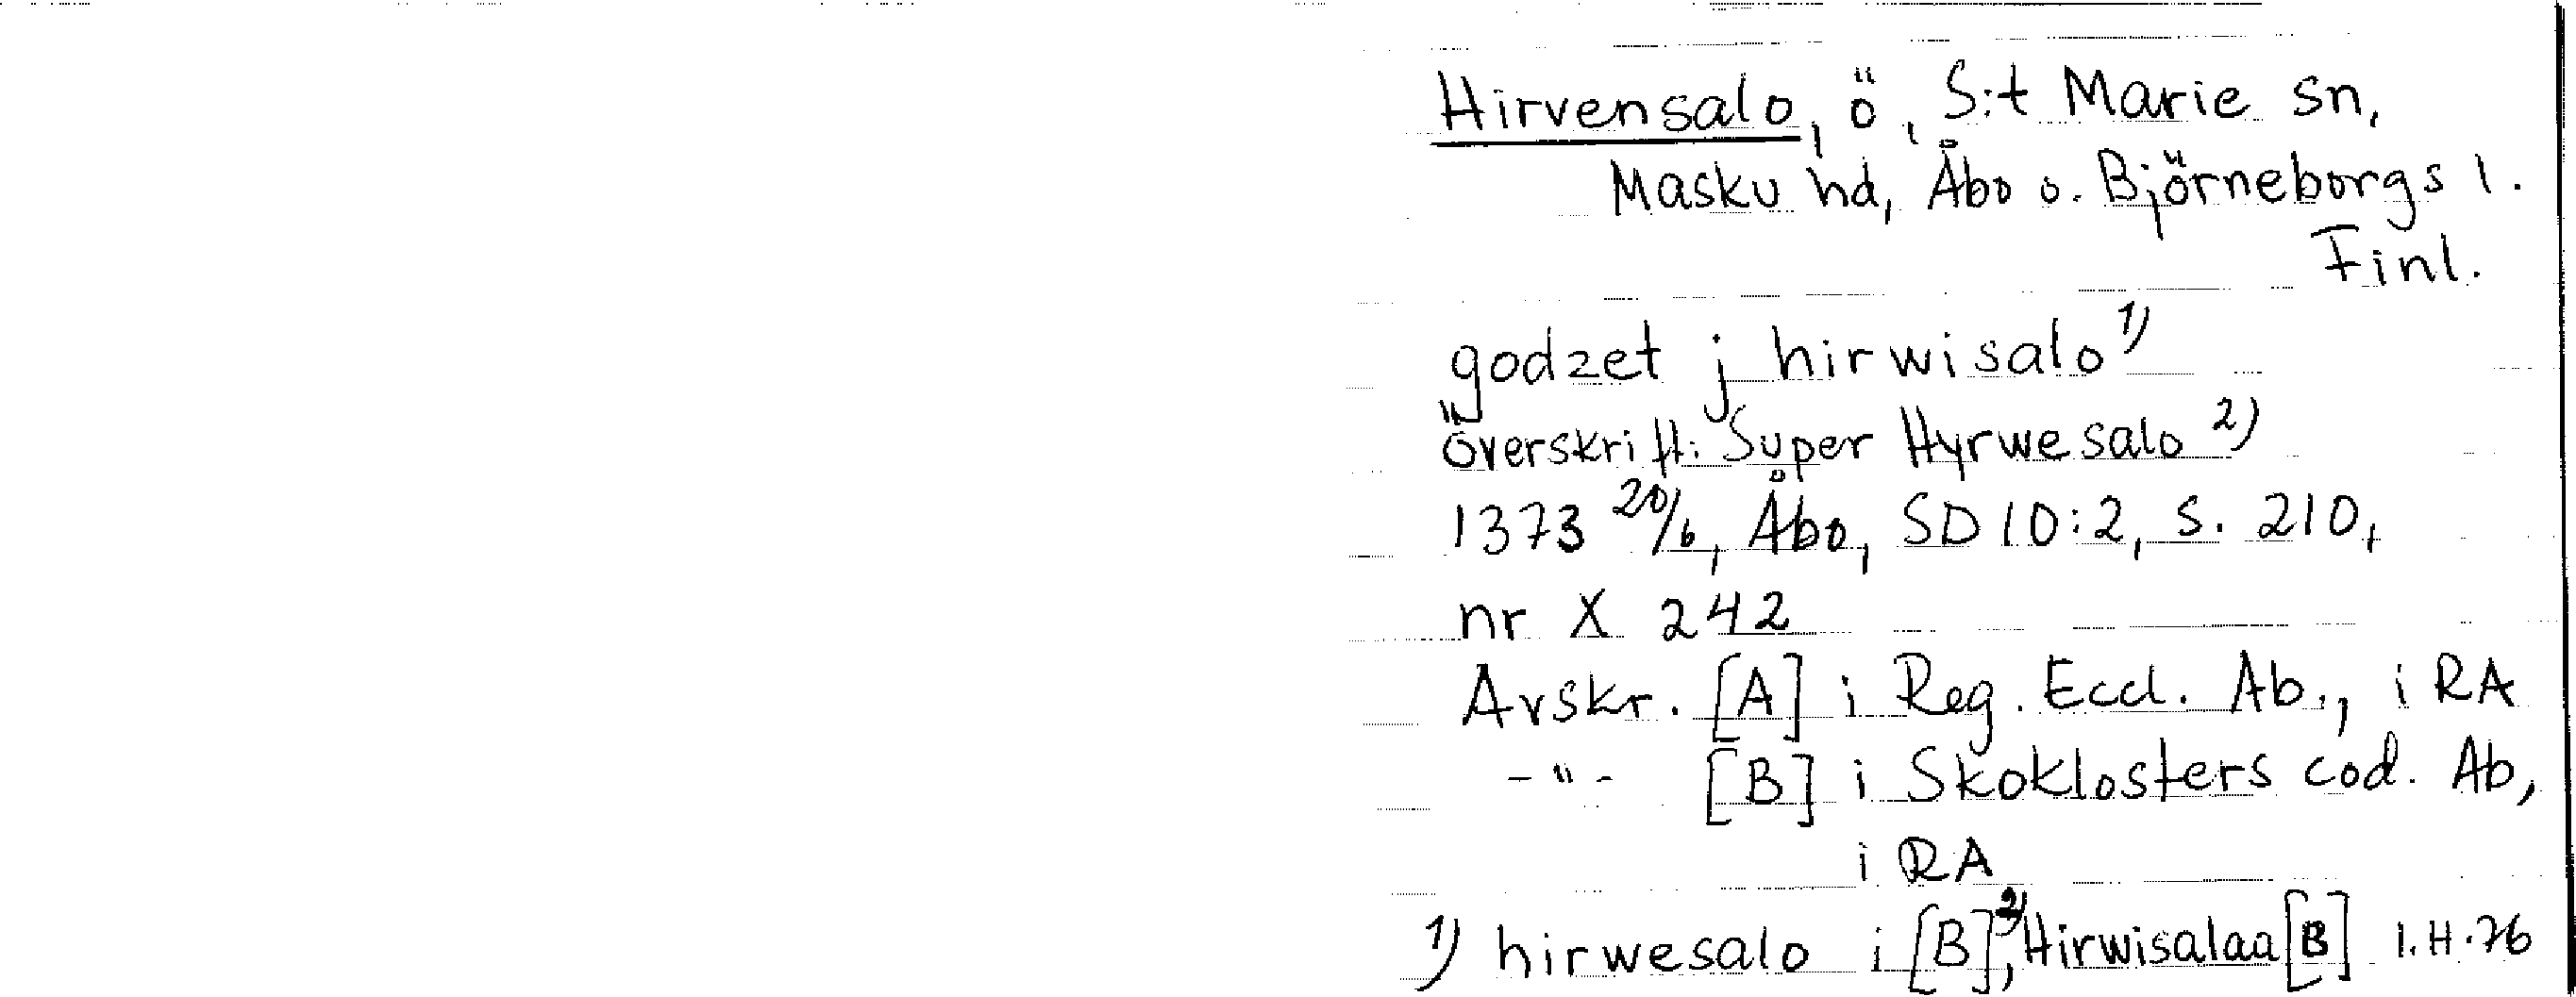 Hirvensalo, ö, S:t Marie sn,
Masku hd, Åbo o. Björneborgs l.
Finl.
godzet j hirwisalo 1)
Överskrift: Super Hyrwesalo 2)
1373 20/6, Åbo, SD 10:2, s. 210,
nr X 242
Avskr. [A] i Reg. Eccl. Ab., i RA
-"- [B] i Skoklosters cod. Ab,
i RA
1) hirwesalo i [B], 2) Hirwisalaa [B] I.H.76